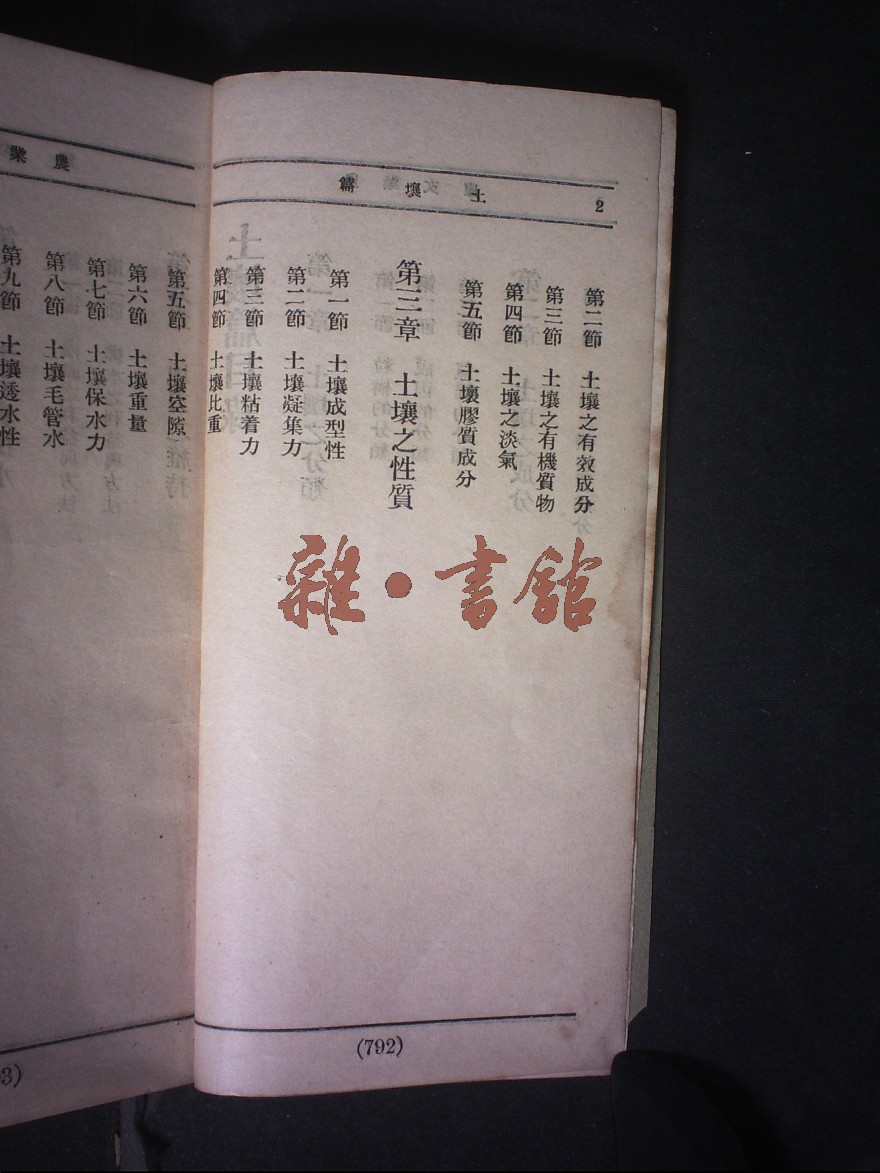 2
土壤篇
第二節 土壤之有效成分
第三節 土壤之有機質物
第四節 土壤之淡氣
第五節 土壤膠質成分
第三章 土壤之性質
第一節 土壤成型性
第二節 土壤凝集力
第三節 土壤粘着力
第四節 土壤比重
(792)
農業
第五節 土壤空隙
第六節 土壤重量
第七節 土壤保水力
第八節 土壤毛管水
第九節 土壤透水性
3)
雜·書館